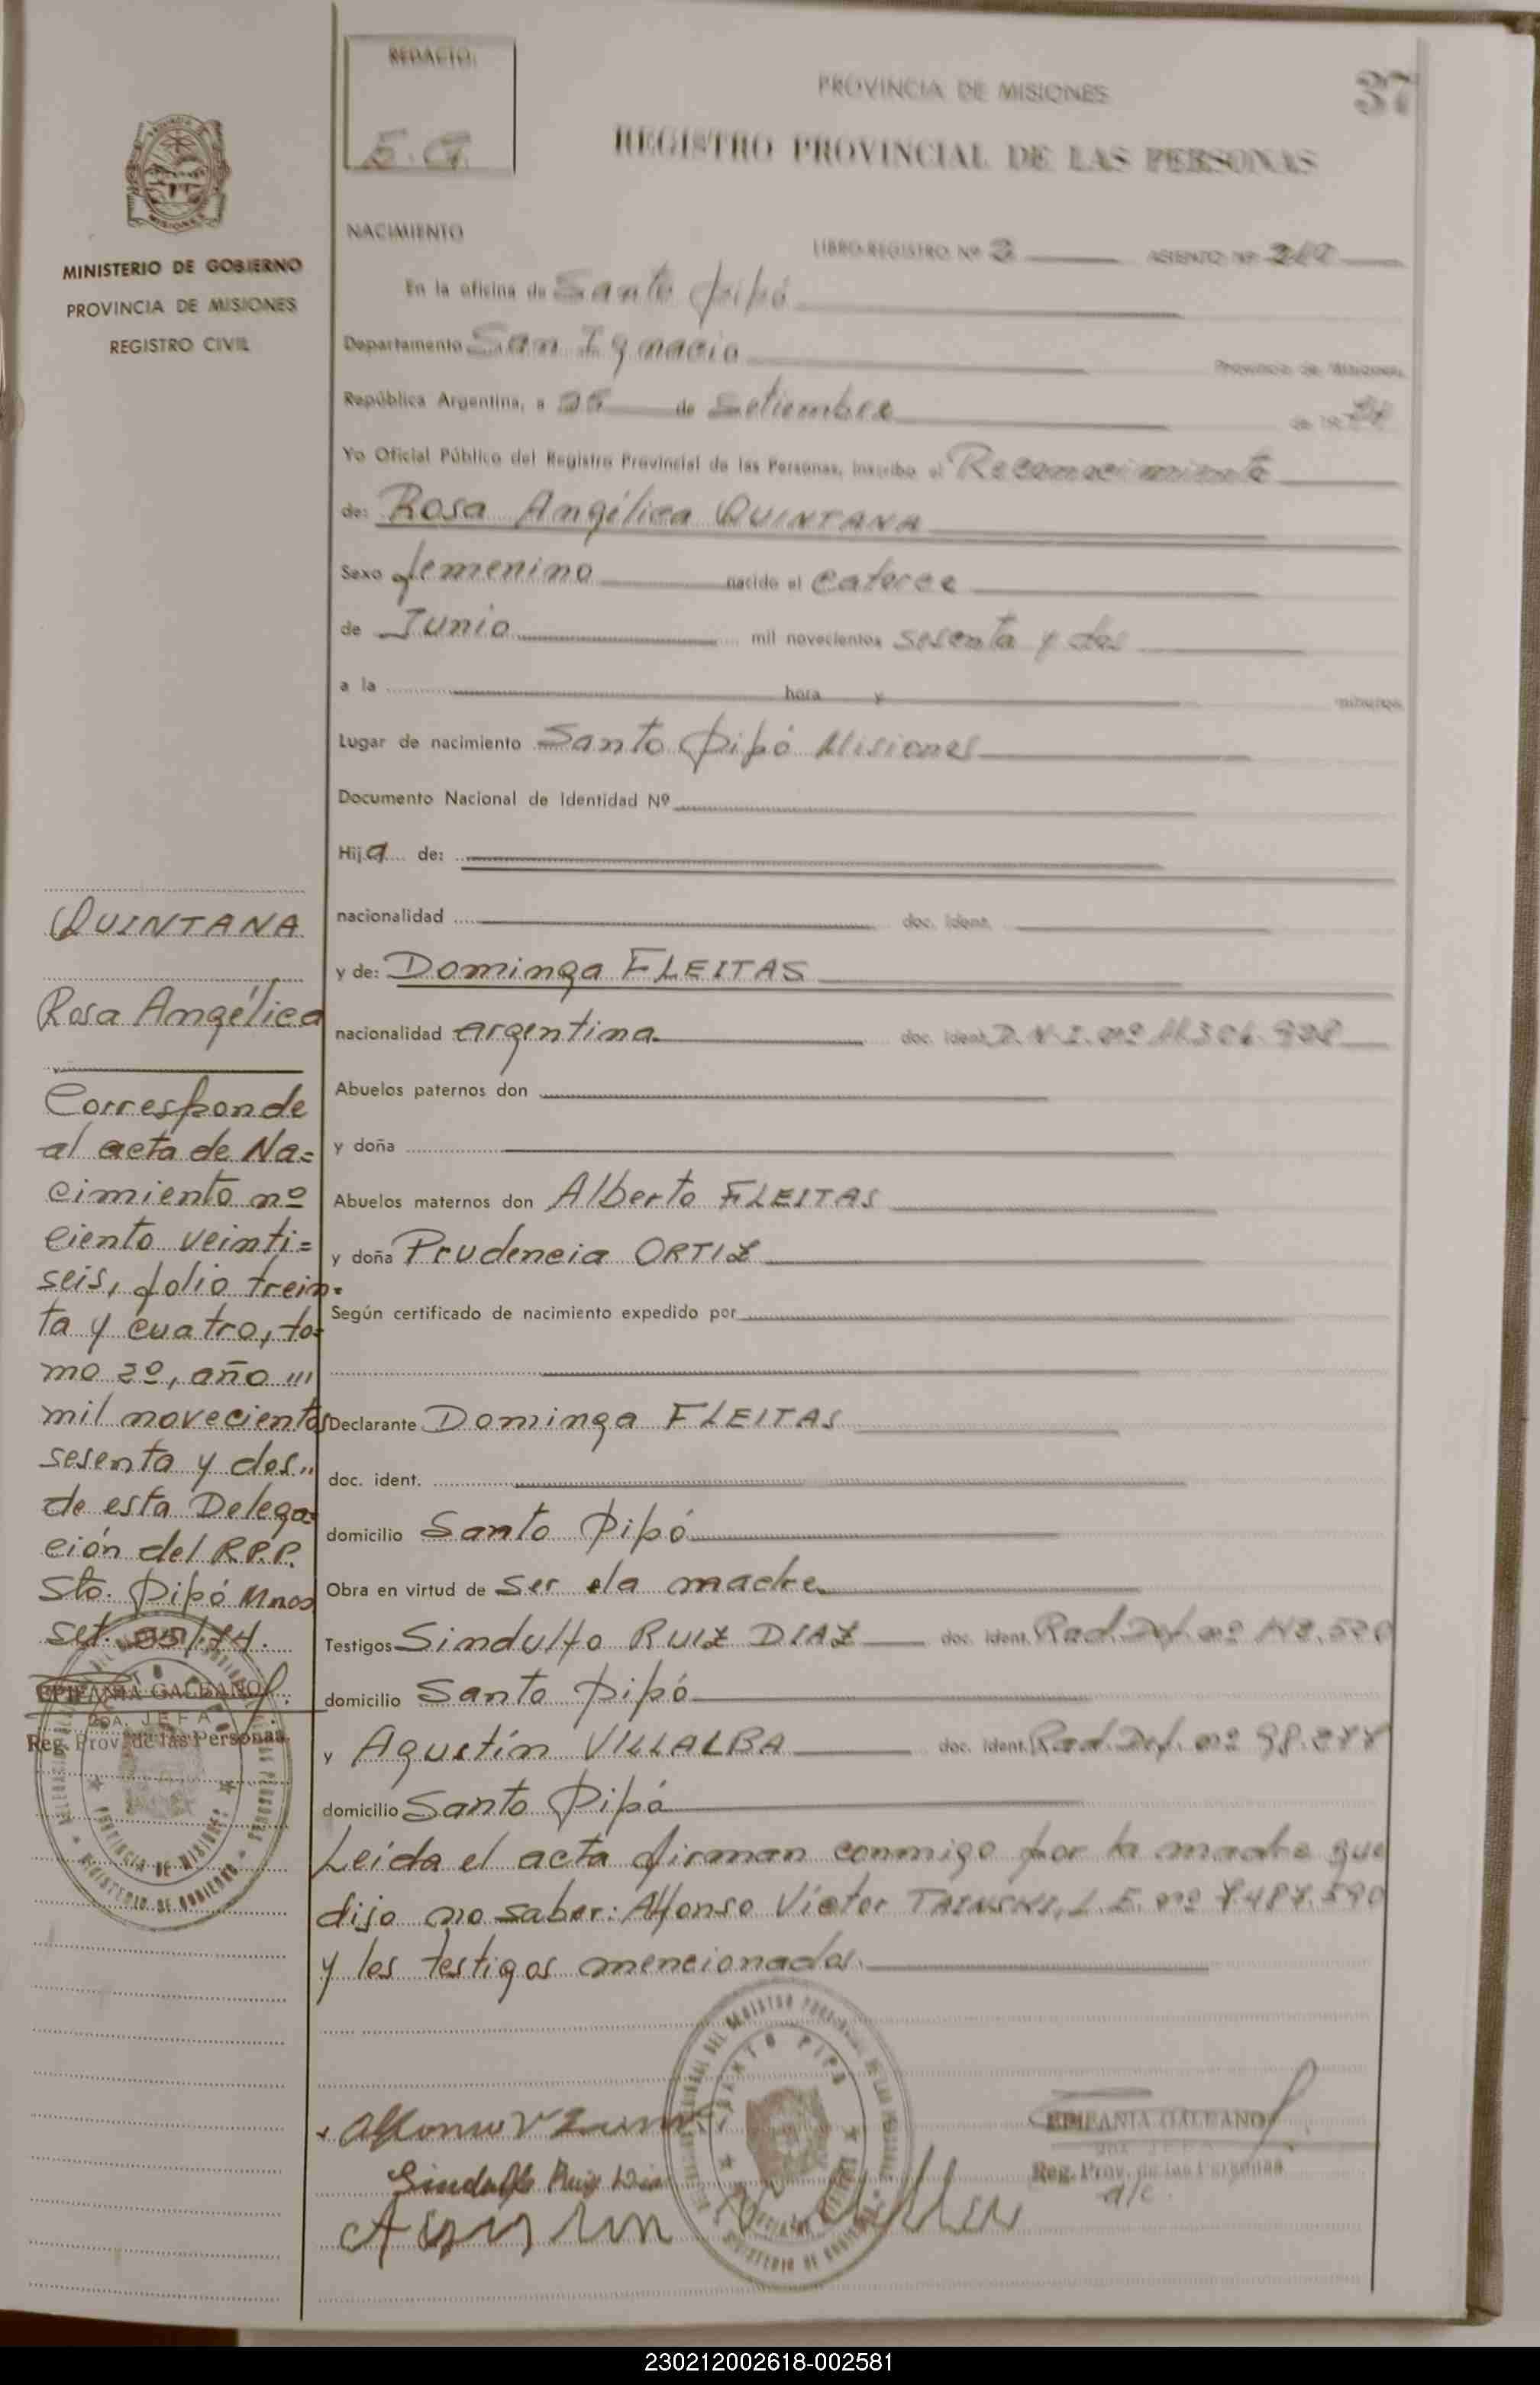 REDACTO:
E. G.
PROVINCIA DE MISIONES
37
REGISTRO PROVINCIAL DE LAS PERSONAS
MISIONES
MINISTERIO DE GOBIERNO
PROVINCIA DE MISIONES
REGISTRO CIVIL
NACIMIENTO
LIBRO-REGISTRO Nº 2 ASIENTO Nº
En la oficina de Santo Pipó
Departamento San Ignacio Provincia de Misiones,
República Argentina, a 25 de Setiembre de 19 74
Yo Oficial Público del Registro Provincial de las Personas, inscribo el Reconocimiento
de: Rosa Angélica QUINTANA
Sexo femenino nacido el catorce
de Junio mil novecientos sesenta y dos
a la hora y minutos
Lugar de nacimiento Santo Pipó Misiones
Documento Nacional de Identidad Nº
Hija de:
nacionalidad doc. ident.
y de: Dominga FLEITAS
nacionalidad argentina doc. ident. D.N.I. nº
Abuelos paternos don
y doña
Abuelos maternos don Alberto FLEITAS
y doña Prudencia ORTIZ
Según certificado de nacimiento expedido por
Declarante Dominga FLEITAS
doc. ident.
domicilio Santo Pipó
Obra en virtud de ser la madre
Testigos Sindulfo RUIZ DIAZ doc. ident. Rad. Def. nº
domicilio Santo Pipó
y Agustín VILLALBA doc. ident. Rad. Def. nº 98.277
domicilio Santo Pipó
Leída el acta firman conmigo por la madre que
dijo no saber: Alfonso Víctor L.E. nº 7.487.590
y los testigos mencionados.
QUINTANA
Rosa Angélica
Corresponde
al acta de Na=
cimiento nº
ciento veinti=
seis, folio trein=
ta y cuatro, to=
mo 2º, año """
mil novecientos
sesenta y dos""
de esta Delega=
ción del R.P.P.
Sto. Pipó Mnes
set. 25/74.
EPIFANIA GALEANO
JEFA
Reg. Prov. de las Personas
PROVINCIA DE MISIONES
MINISTERIO DE GOBIERNO
Sindulfo Ruiz Diaz
SANTO PIPO
MINISTERIO DE GOBIERNO
EPIFANIA GALEANO
JEFA
Reg. Prov. de las Personas
a/c.
230212002618-002581